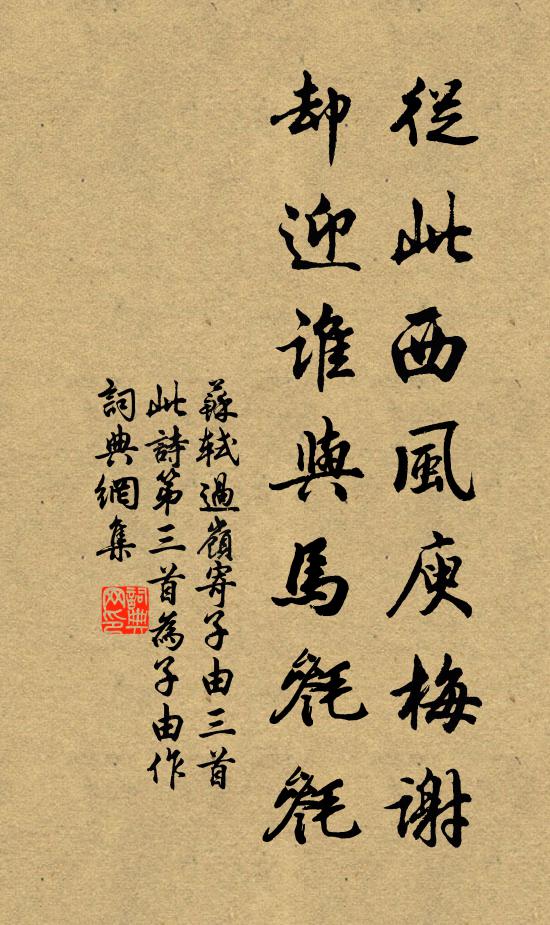 從此西風庾梅謝
却迎誰與馬毿毿
蘇軾過嶺寄子由三首
此詩第三首為子由作
詞典網集
詞典網印